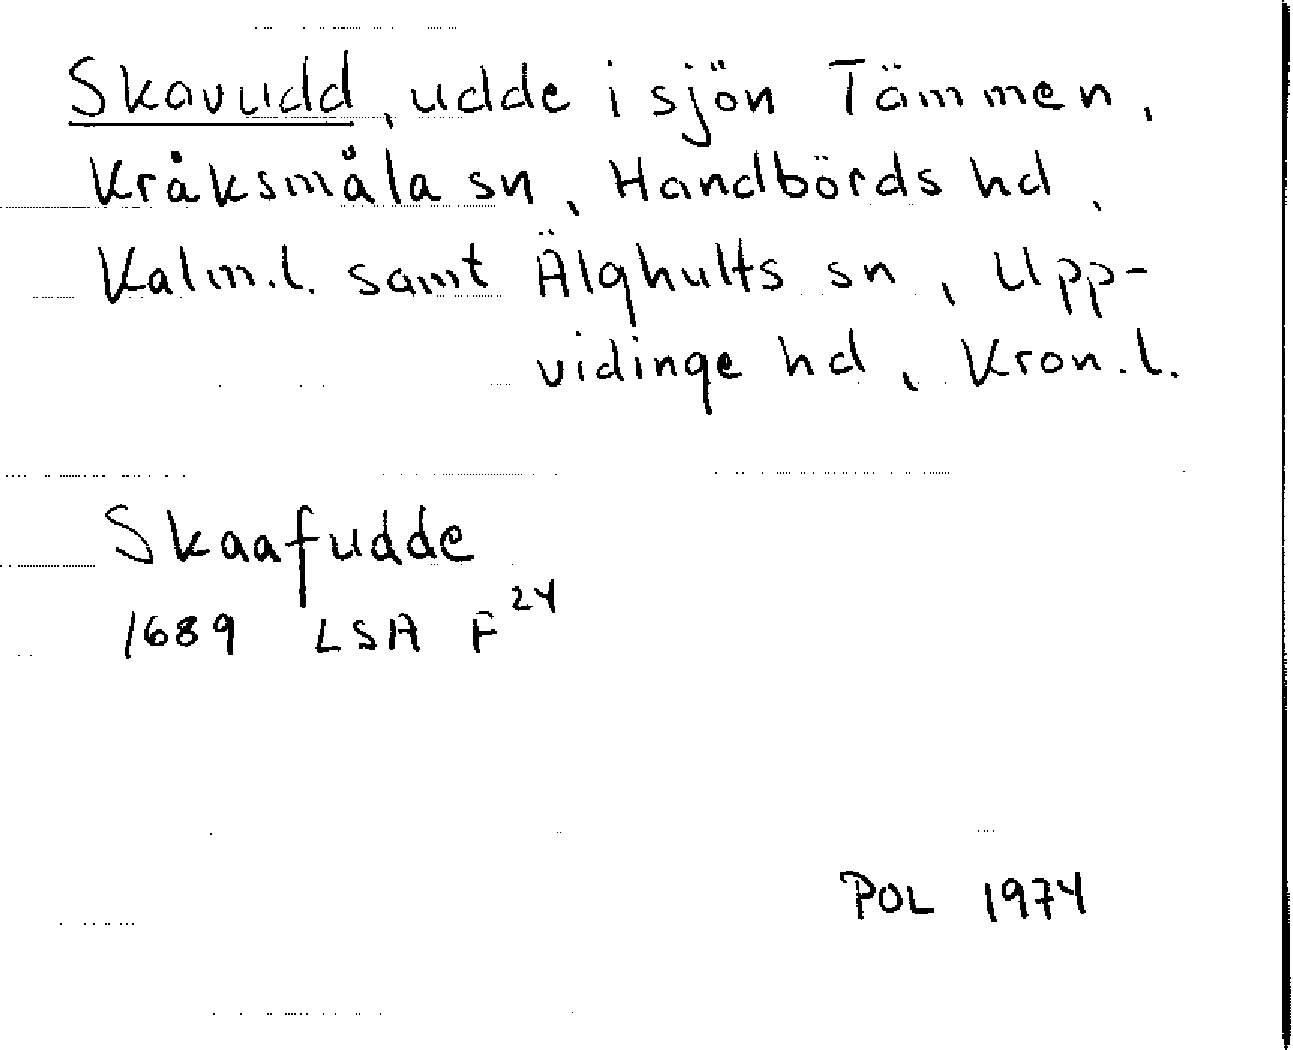 Skavudd, udde i sjön Tämmen,
Kråksmåla sn, Handbörds hd,
Kalm.l. samt Älghults sn, Upp-
vidinge hd, Kron.l.
Skaafudde
1689 LSA F 24
POL 1974